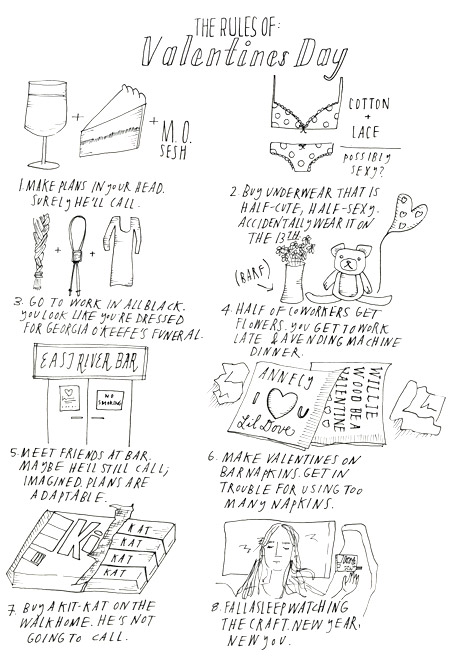 THE RULES OF:
Valentines Day
M.O.
SESH
1. MAKE PLANS IN YOUR HEAD.
SURELY HE'LL CALL.
COTTON
+
LACE
POSSIBLY
SEXY?
2. BUY UNDERWEAR THAT IS
HALF-CUTE, HALF-SEXY.
ACCIDENTALLY WEAR IT ON
THE 13TH.
3. GO TO WORK IN ALL BLACK.
YOU LOOK LIKE YOU'RE DRESSED
FOR GEORGIA O'KEEFE'S FUNERAL.
(BARF)
4. HALF OF COWORKERS GET
FLOWERS. YOU GET TO WORK
LATE & A VENDING MACHINE
DINNER.
EAST RIVER BAR
NO
SMOKING
5. MEET FRIENDS AT BAR.
MAYBE HE'LL STILL CALL;
IMAGINED PLANS ARE
ADAPTABLE.
ANNECY
I
Lil Dove
WILLIE
WOOD BE A
VALENTINE
6. MAKE VALENTINES ON
BAR NAPKINS. GET IN
TROUBLE FOR USING TOO
MANY NAPKINS.
Ki
KAT
KAT
KAT
KAT
7. BUY A KIT-KAT ON THE
WALK HOME. HE'S NOT
GOING TO CALL.
8. FALL ASLEEP WATCHING
THE CRAFT. NEW YEAR,
NEW YOU.